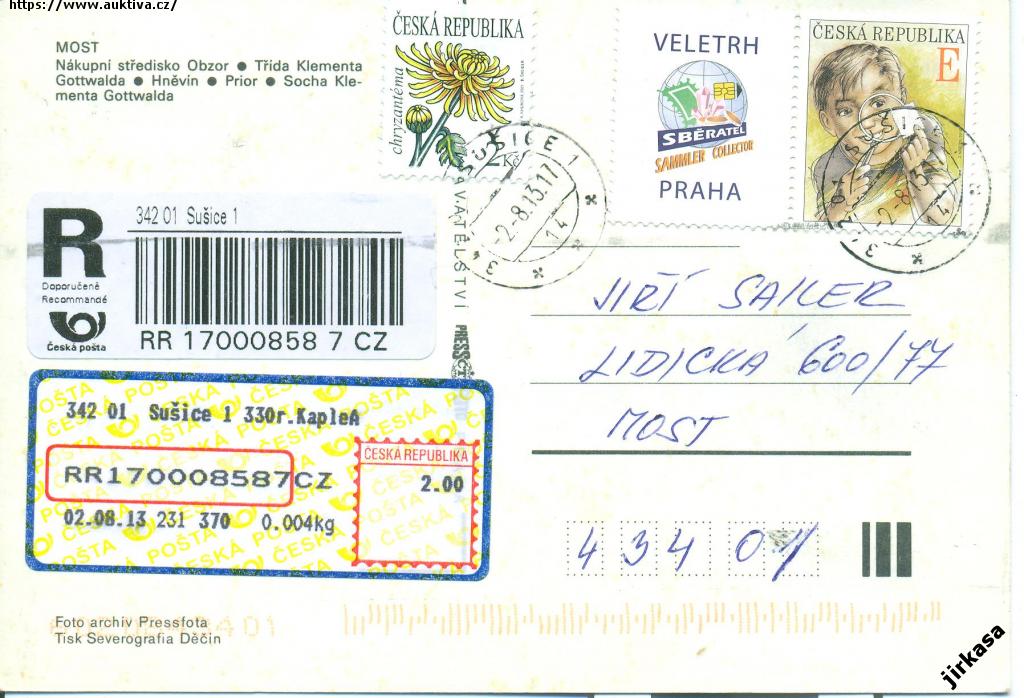 https://www.auktiva.cz/
MOST
Nákupní středisko Obzor ● Třída Klementa
Gottwalda ● Hněvín ● Prior ● Socha Kle-
menta Gottwalda
ČESKÁ REPUBLIKA
chryzantéma
2 Kč
VELETRH
SBĚRATEL
SAMMLER COLLECTOR
PRAHA
ČESKÁ REPUBLIKA
E
SUŠICE 1
-2.-8.13.17
14
R
342 01 Sušice 1
Doporučeně
Recommandé
Česká pošta
RR 17000858 7 CZ
VATELSTVÍ PRESS
342 01 Sušice 1 330r.KapleA
RR170008587CZ
02.08.13 231 370 0.004kg
ČESKÁ REPUBLIKA
2.00
JIŘÍ SAILER
LIDICKÁ 600/77
MOST
434 01
Foto archiv Pressfota
Tisk Severografia Děčín
jirkasa